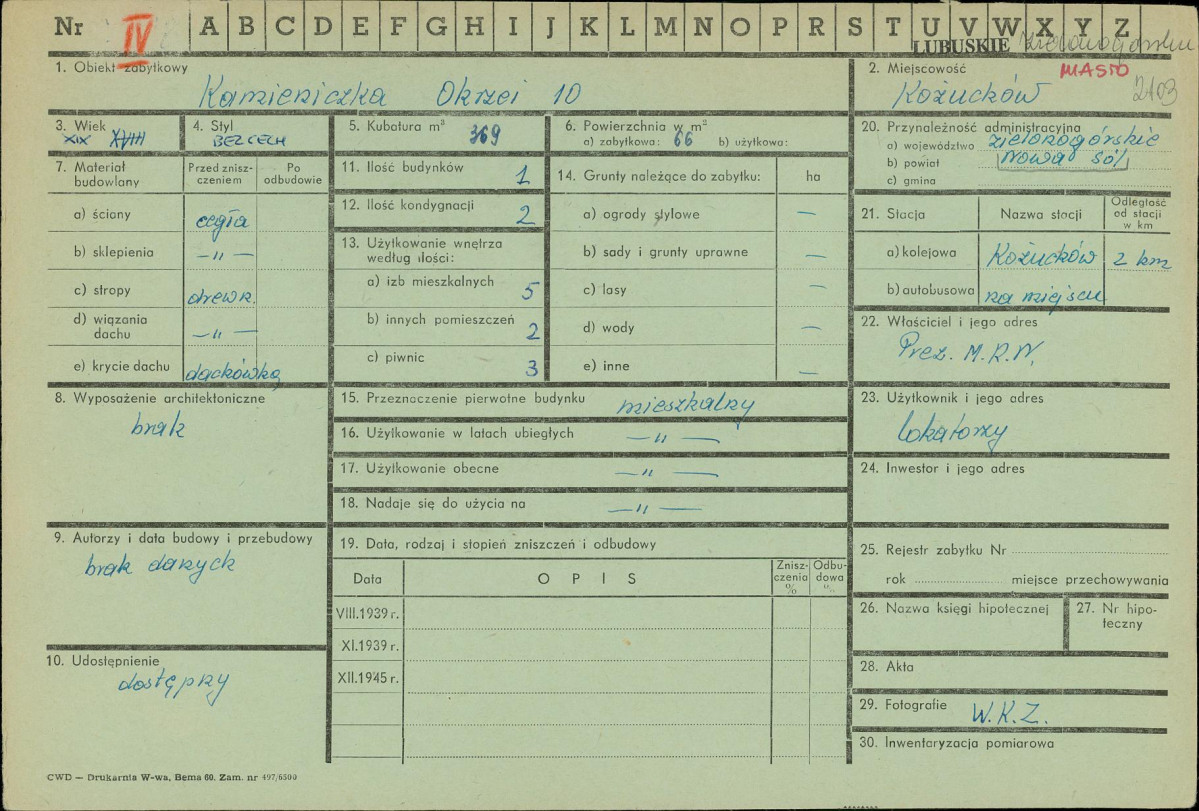 Nr IV A B C D E F G H I J K L M N O P R S T U V W X Y Z
LUBUSKIE
1. Obiekt zabytkowy
Kamieniczka Okrzei 10
2. Miejscowość MIASTO
Kożuchów 2103
3. Wiek
XIX XVIII
4. Styl
BEZ CECH
5. Kubatura m³ 369
6. Powierzchnia w m²
a) zabytkowa: 66 b) użytkowa:
20. Przynależność administracyjna
a) województwo zielonogórskie
b) powiat Nowa Sól
c) gmina
7. Materiał budowlany
Przed zniszczeniem
Po odbudowie
a) ściany cegła
b) sklepienia —„—
c) stropy drewn.
d) wiązania dachu —„—
e) krycie dachu dachówka
11. Ilość budynków 1
12. Ilość kondygnacji 2
13. Użytkowanie wnętrza
według ilości:
a) izb mieszkalnych 5
b) innych pomieszczeń 2
c) piwnic 3
14. Grunty należące do zabytku: ha
a) ogrody stylowe —
b) sady i grunty uprawne —
c) lasy —
d) wody —
e) inne —
21. Stacja Nazwa stacji Odległość od stacji w km
a) kolejowa Kożuchów 2 km
b) autobusowa na miejscu
22. Właściciel i jego adres
Prez. M.R.N.
8. Wyposażenie architektoniczne
brak
15. Przeznaczenie pierwotne budynku mieszkalny
16. Użytkowanie w latach ubiegłych —„—
17. Użytkowanie obecne —„—
18. Nadaje się do użycia na —„—
23. Użytkownik i jego adres
lokatorzy
24. Inwestor i jego adres
9. Autorzy i data budowy i przebudowy
brak danych
10. Udostępnienie
dostępny
19. Data, rodzaj i stopień zniszczeń i odbudowy
Data OPIS Zniszczenia % Odbudowa %
VIII.1939 r.
XI.1939 r.
XII.1945 r.
25. Rejestr zabytku Nr
rok miejsce przechowywania
26. Nazwa księgi hipotecznej
27. Nr hipoteczny
28. Akta
29. Fotografie W.K.Z.
30. Inwentaryzacja pomiarowa
CWD — Drukarnia W-wa, Bema 60. Zam. nr 497/6500